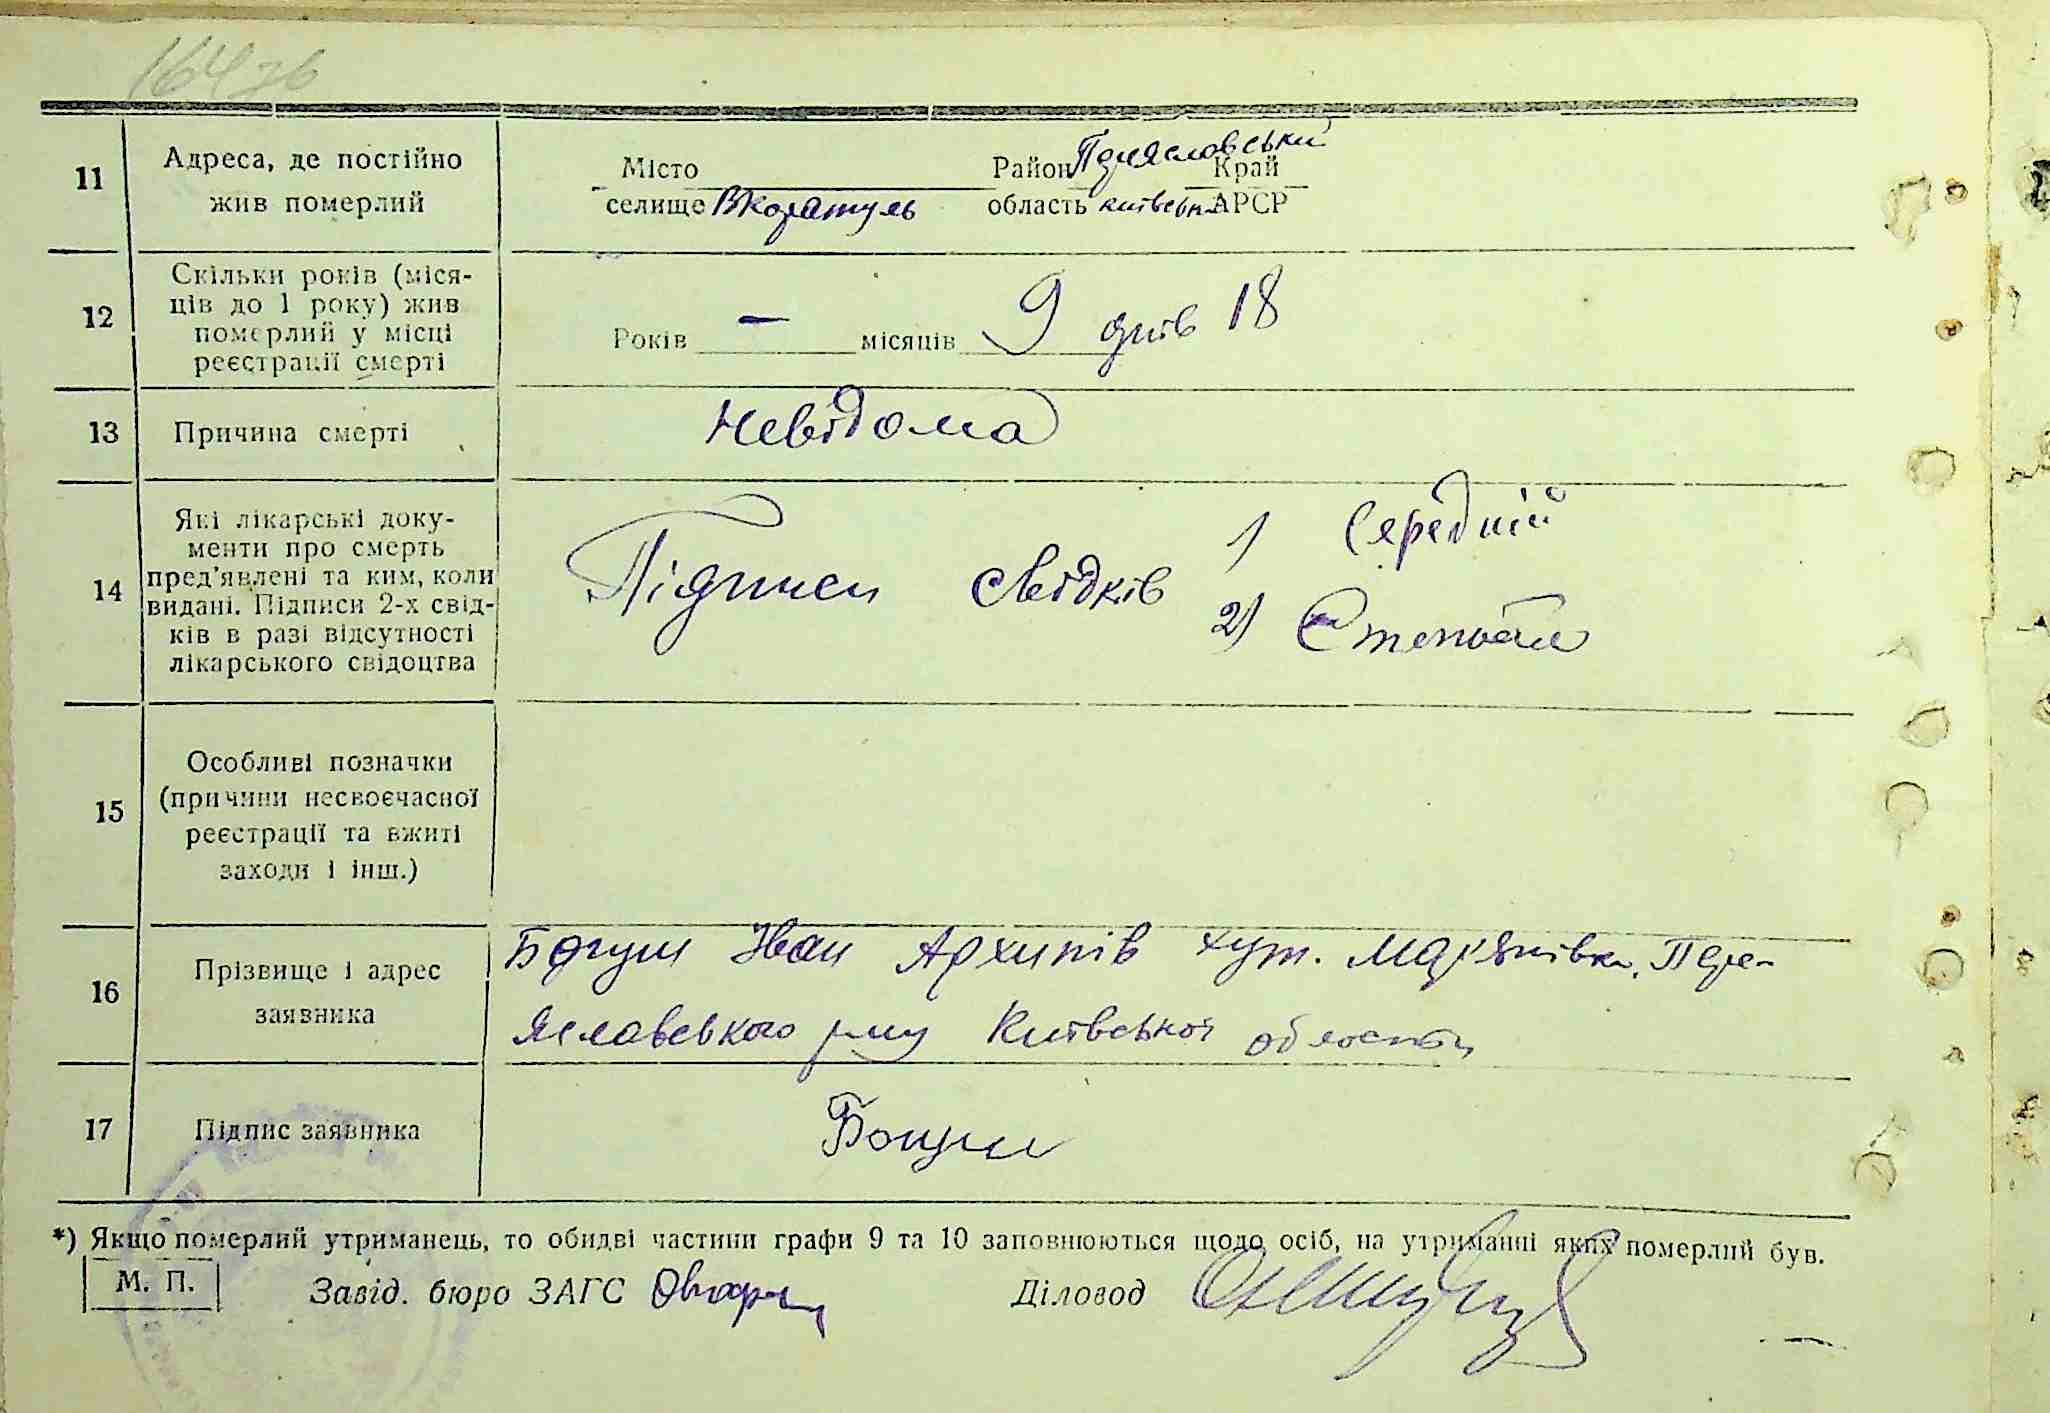 164 зв
11
Адреса, де постійно
жив померлий
Місто Район Переяславський Край
селище ВКаратуль область київська АРСР
12
Скільки років (міся-
ців до 1 року) жив
померлий у місці
реєстрації смерті
Років — місяців 9 днів 18
13
Причина смерті
Невідома
14
Які лікарські доку-
менти про смерть
пред'явлені та ким, коли
видані. Підписи 2-х свід-
ків в разі відсутності
лікарського свідоцтва
Підписи свідків 1) Середній
2)
15
Особливі позначки
(причини несвоєчасної
реєстрації та вжиті
заходи і інш.)
16
Прізвище і адрес
заявника
Богуш Іван Архипів хут. Мар'янівка, Пере-
яславського р-ну Київської області
17
Підпис заявника
Богуш
*) Якщо померлий утриманець, то обидві частини графи 9 та 10 заповнюються щодо осіб, на утриманні яких померлий був.
М. П.
Завід. бюро ЗАГС
Діловод